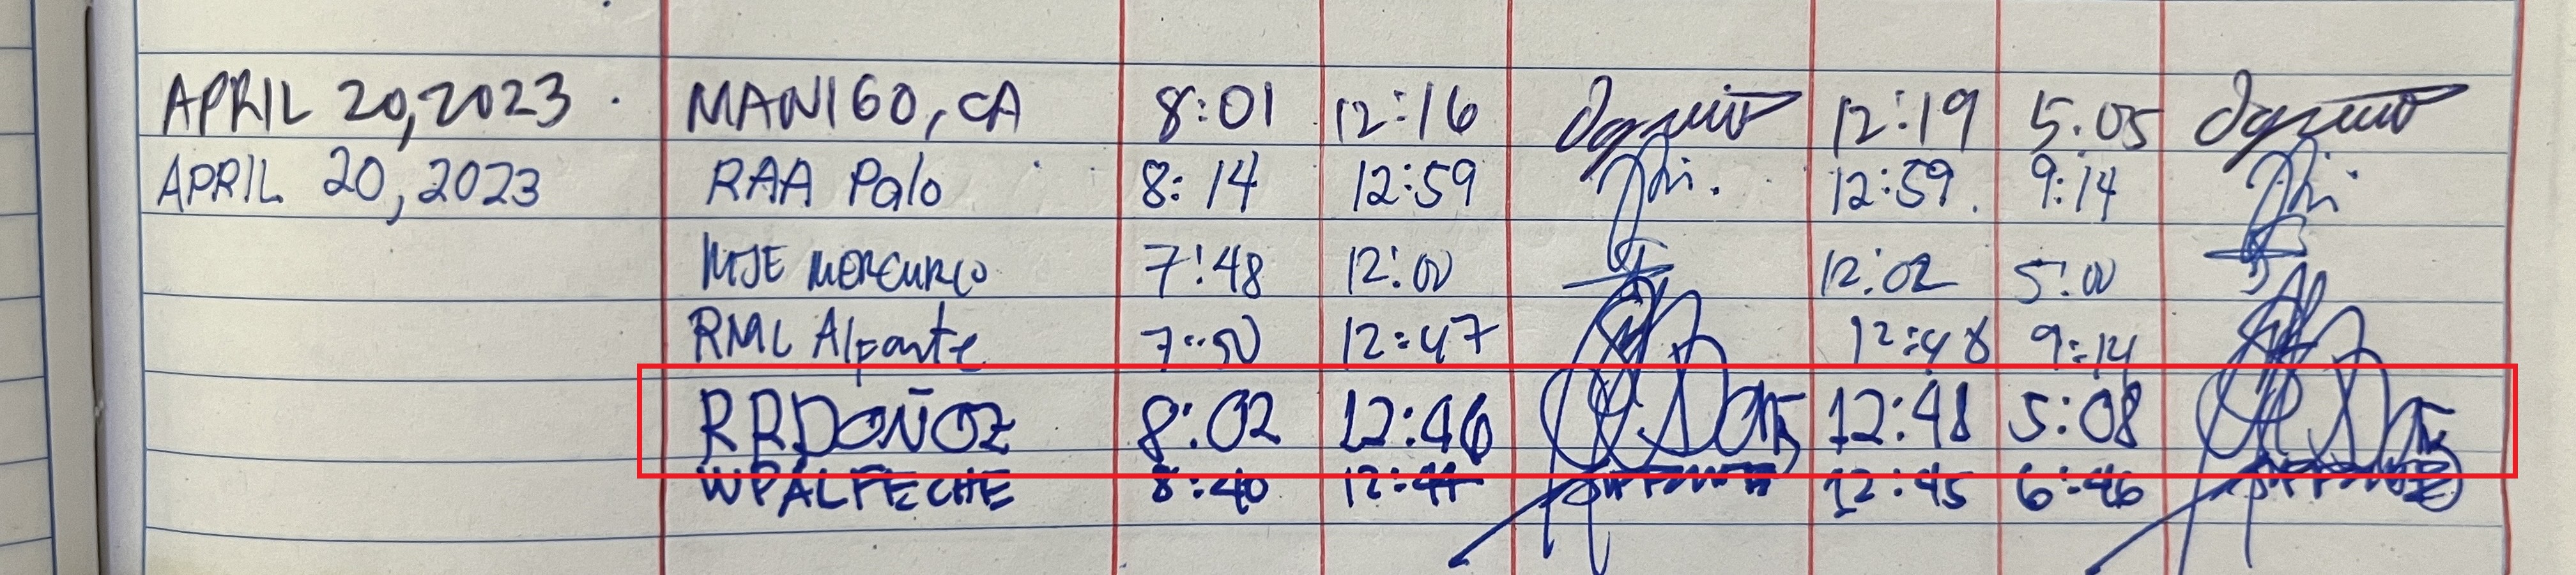 APRIL 20,2023 MANIGO, CA 8:01 12:16 12:19 5:05
APRIL 20,2023 RAA Palo 8:14 12:59 12:59 9:14
MJE MERCURIO 7:48 12:00 12:02 5:00
RML Alfante 7:50 12:47 12:48 9:14
RRDOÑOZ 8:02 12:46 12:48 5:08
WPALFECHE 8:40 12:44 12:45 6:46